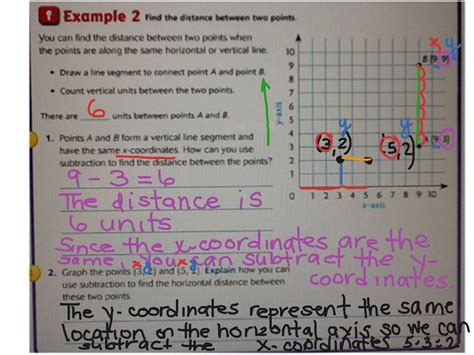 Example 2 Find the distance between two points.
You can find the distance between two points when
the points are along the same horizontal or vertical line.
• Draw a line segment to connect point A and point B.
• Count vertical units between the two points.
There are 6 units between points A and B.
1. Points A and B form a vertical line segment and
have the same x-coordinates. How can you use
subtraction to find the distance between the points?
9 - 3 = 6
The distance is
6 units
Since the x-coordinates are the
same, you can subtract the y-
coordinates.
2. Graph the points (3, 2) and (5, 2). Explain how you can
use subtraction to find the horizontal distance between
these two points.
The y-coordinates represent the same
location on the horizontal axis so we can
subtract the x-coordinates 5-3=2
x y
10
9
8
7
6
5
4
3
2
1
0 1 2 3 4 5 6 7 8 9 10
y-axis
x-axis
B (9, 9)
(9, 3)
y
(3, 2)
y
(5, 2)